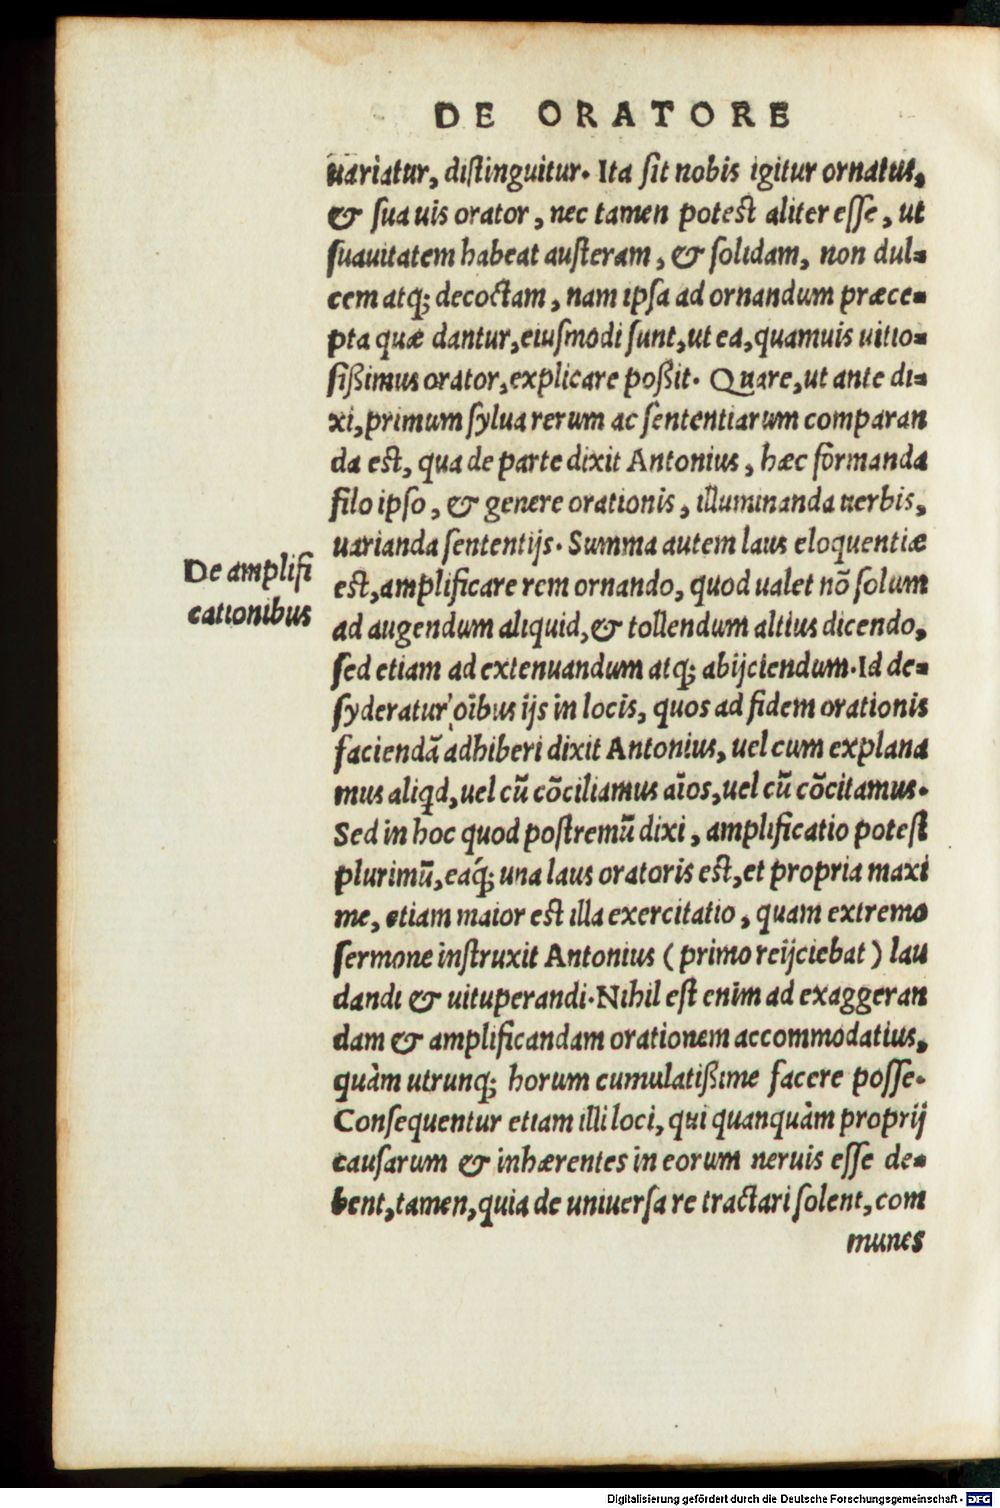 DE ORATORE
uariatur, distinguitur. Ita sit nobis igitur ornatus,
& suauis orator, nec tamen potest aliter esse, ut
suauitatem habeat austeram, & solidam, non dul-
cem atq; decoctam, nam ipsa ad ornandum præce-
pta quæ dantur, eiusmodi sunt, ut ea, quamuis uitio-
sißimus orator, explicare poßit. Quare, ut ante di-
xi, primum sylua rerum ac sententiarum comparan
da est, qua de parte dixit Antonius, hæc formanda
filo ipso, & genere orationis, illuminanda uerbis,
uarianda sententijs. Summa autem laus eloquentiæ
De amplifi
cationibus
est, amplificare rem ornando, quod ualet nõ solum
ad augendum aliquid, & tollendum altius dicendo,
sed etiam ad extenuandum atq; abijciendum. Id de-
syderatur oĩbus ijs in locis, quos ad fidem orationis
faciendã adhiberi dixit Antonius, uel cum explana
mus aliqd, uel cũ cõciliamus aĩos, uel cũ cõcitamus.
Sed in hoc quod postremũ dixi, amplificatio potest
plurimũ, eáq; una laus oratoris est, et propria maxi
me, etiam maior est illa exercitatio, quam extremo
sermone instruxit Antonius (primo reijciebat) lau
dandi & uituperandi. Nihil est enim ad exaggeran
dam & amplificandam orationem accommodatius,
quàm utrunq; horum cumulatißime facere posse.
Consequentur etiam illi loci, qui quanquàm proprij
causarum & inhærentes in eorum neruis esse de-
bent, tamen, quia de uniuersa re tractari solent, com
munes
Digitalisierung gefördert durch die Deutsche Forschungsgemeinschaft - DFG